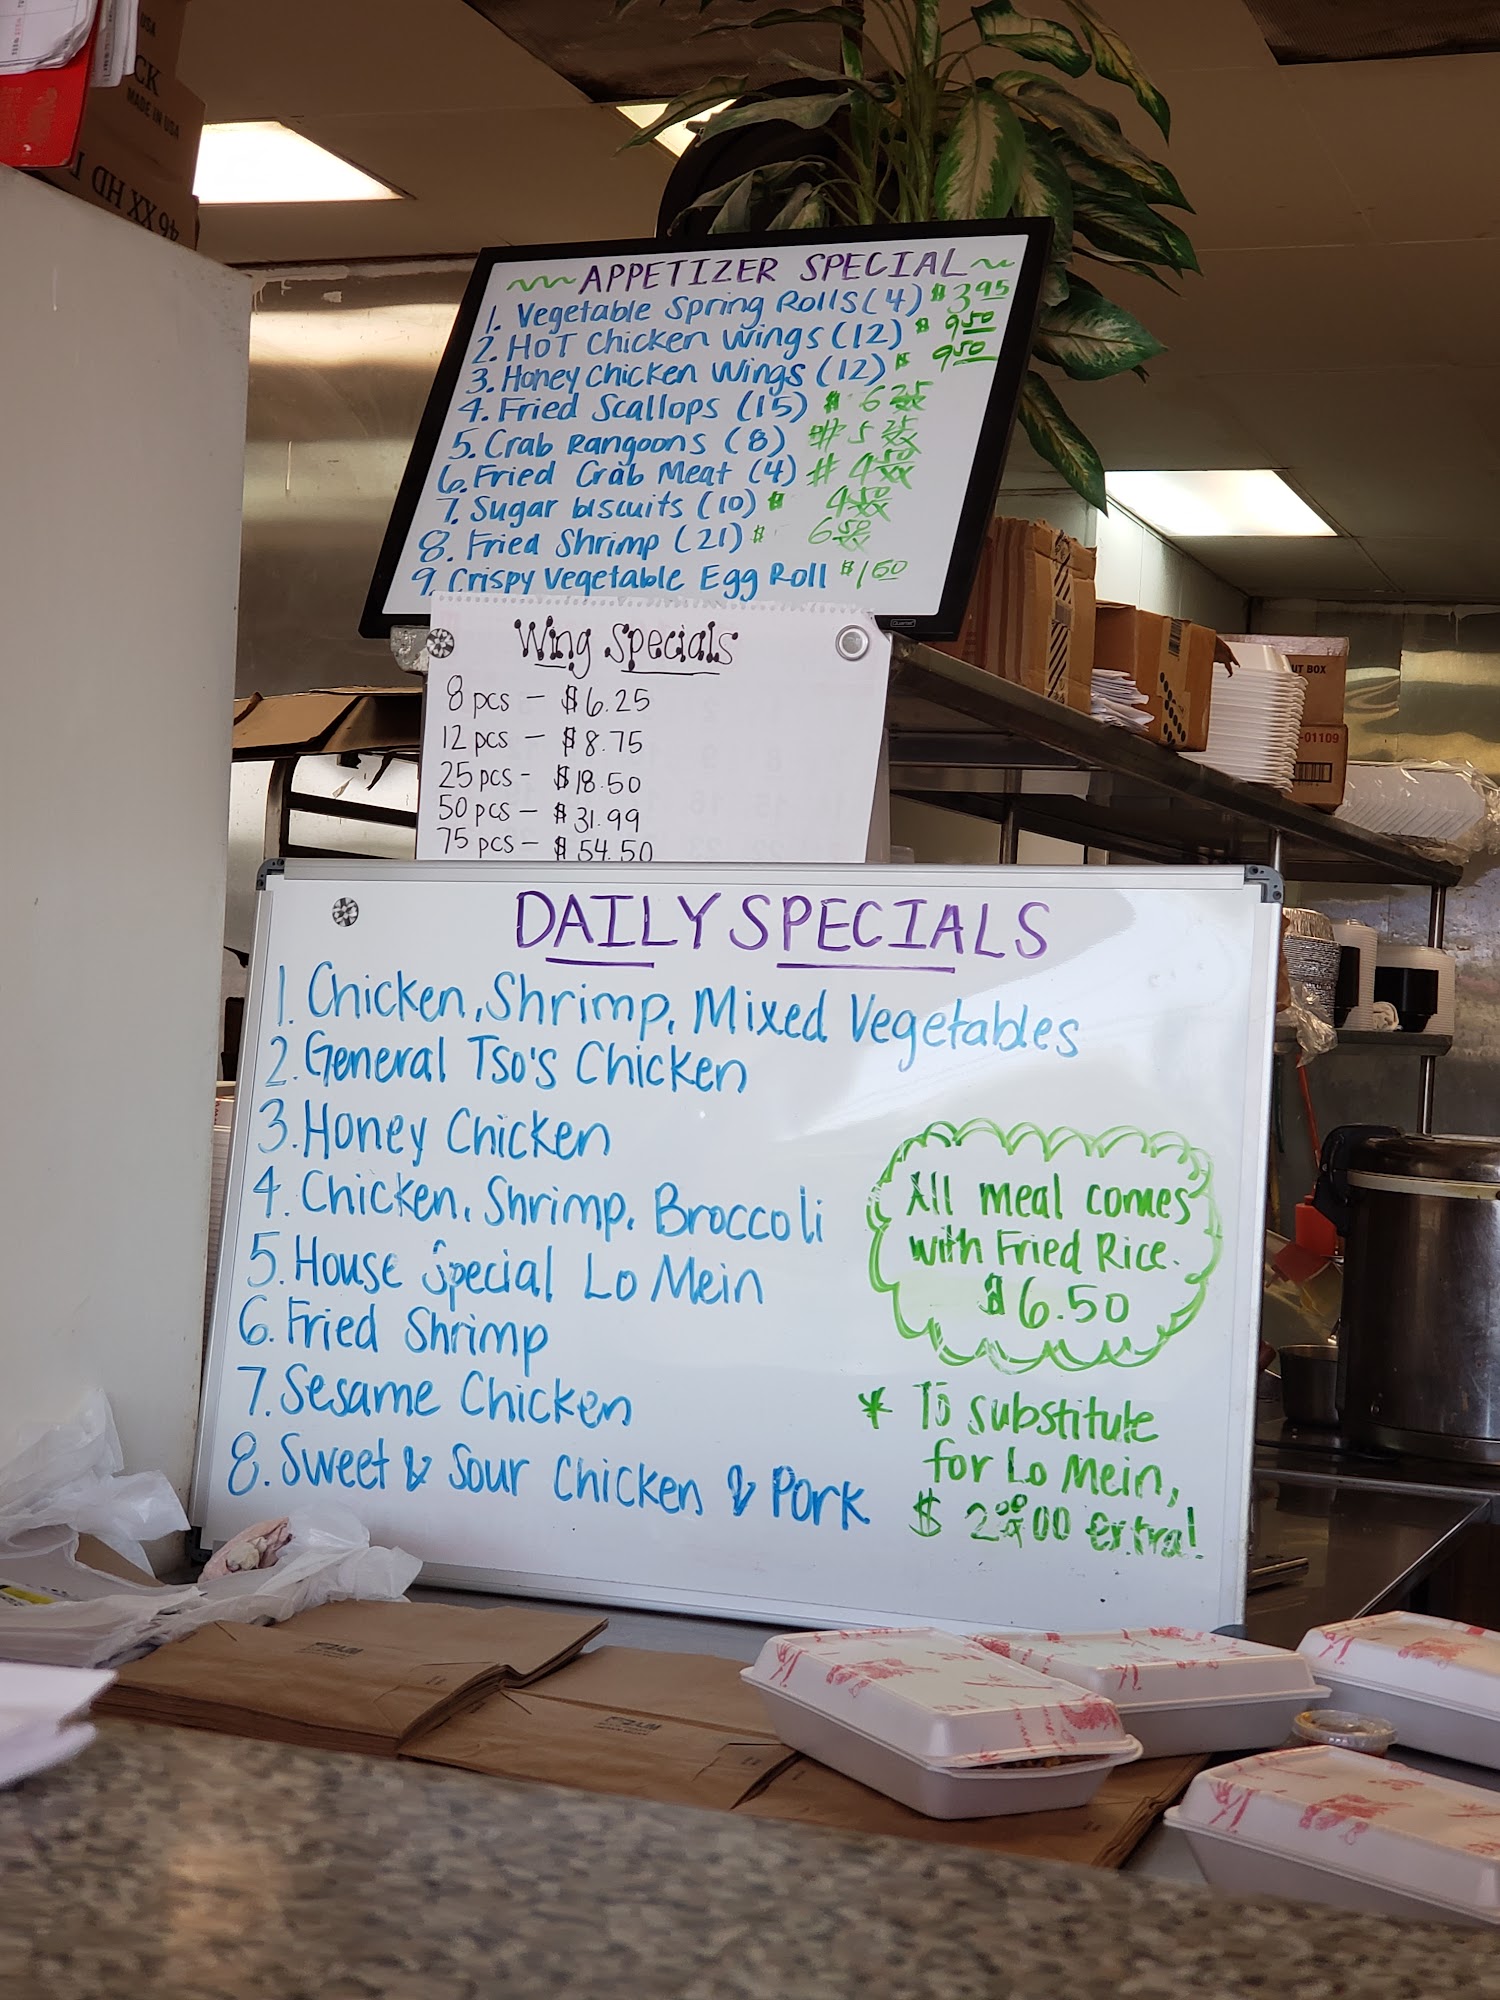 USA
CK
MADE IN USA
46 XX HD L
APPETIZER SPECIAL
1. Vegetable Spring Rolls (4) $3.95
2. HOT Chicken Wings (12) $9.50
3. Honey Chicken Wings (12) $9.50
4. Fried Scallops (15) $6.25
5. Crab Rangoons (8) $5.25
6. Fried Crab Meat (4) $4.50
7. Sugar biscuits (10) $4.50
8. Fried Shrimp (21) $6.50
9. Crispy Vegetable Egg Roll $1.50
Wing Specials
8 pcs - $6.25
12 pcs - $8.75
25 pcs - $18.50
50 pcs - $31.99
75 pcs - $54.50
UT BOX
-01109
DAILY SPECIALS
1. Chicken, Shrimp, Mixed Vegetables
2. General Tso's Chicken
3. Honey Chicken
4. Chicken, Shrimp, Broccoli
5. House Special Lo Mein
6. Fried Shrimp
7. Sesame Chicken
8. Sweet & Sour Chicken & Pork
All meal comes
with Fried Rice.
$6.50
* To substitute
for Lo Mein,
$ 2.00 extra!